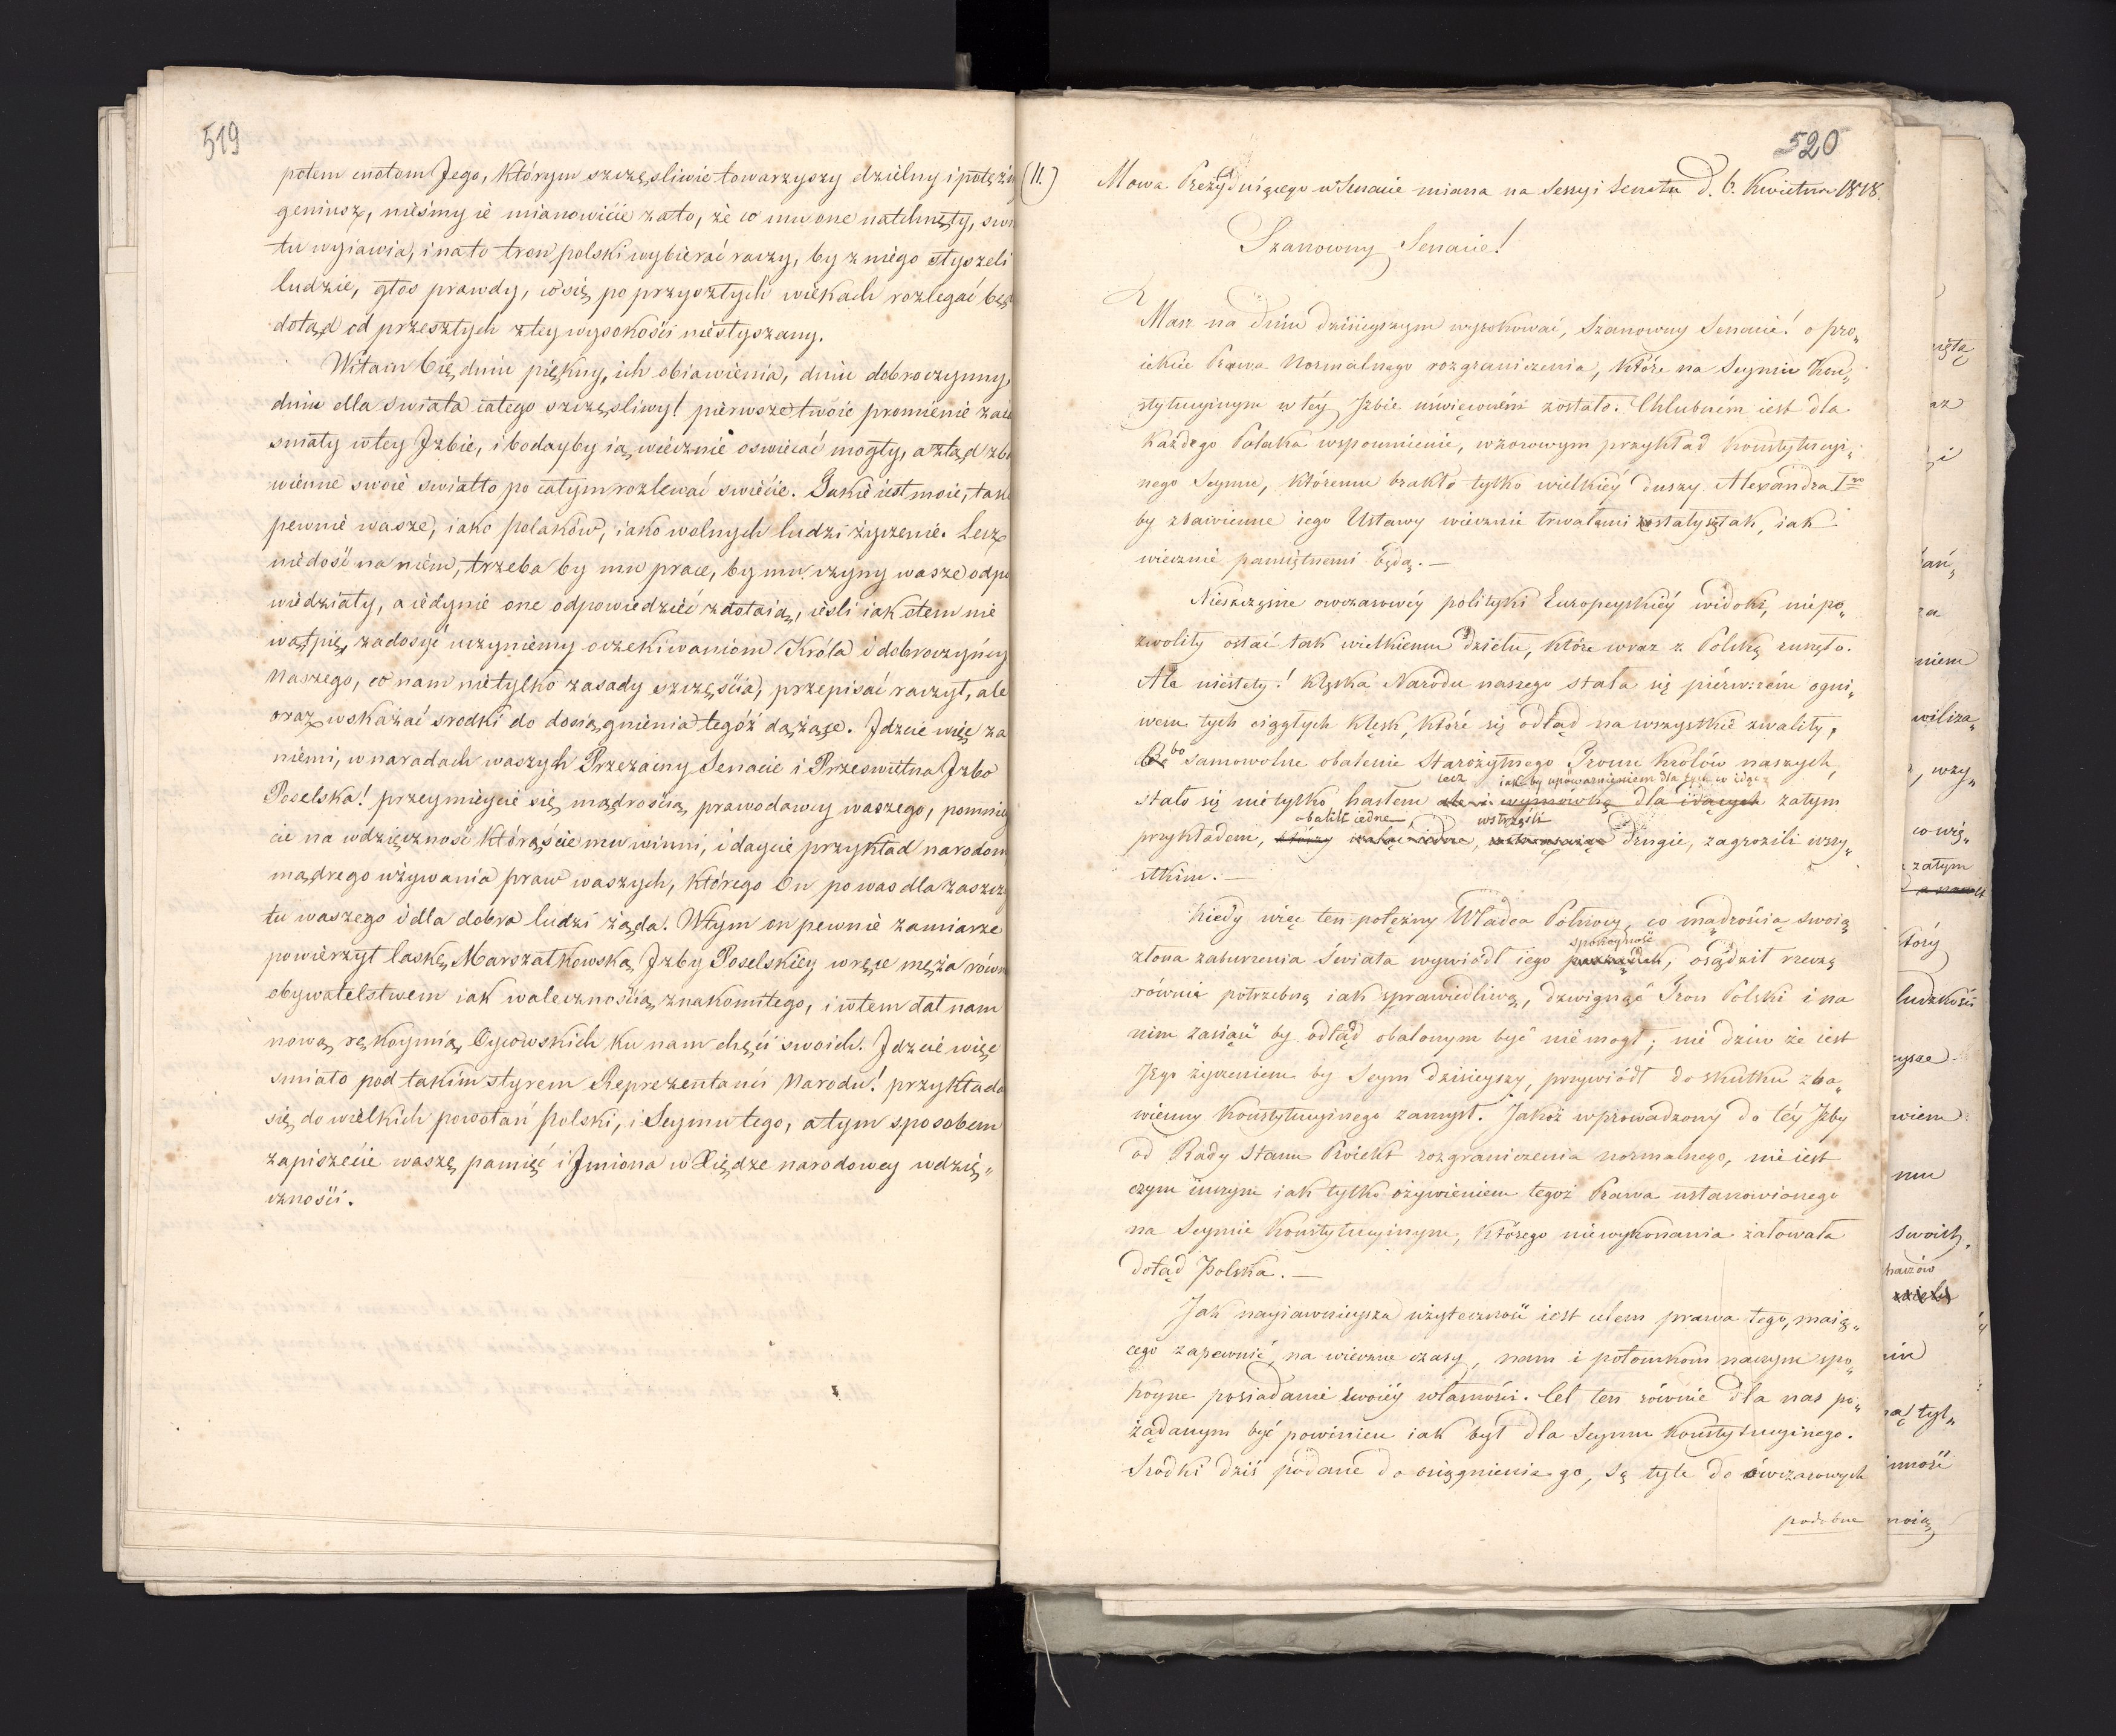 519
potem cnotom Jego, którym szczęsliwie towarzyszy dzielny i potężn
geniusz, nieśmy ie mianowicie zato, że co mu one natchnęły, swi
tu wyiawia, i na to tron polski wybierać raczy, by z niego słyszeli
ludzie, głos prawdy, co się po przyszłych wiekach rozlegać będ
dotąd od przeszłych z tey wysokości niesłyszany.
Witam Cię dniu piękny, ich obiawienia, dniu dobroczynny,
dniu dla swiata całego szczęsliwy! pierwsze twoie promienie zaia
sniały w tey Jzbie, i bodayby ią wiecznie oswiecać mogły, a ztąd zba
wienne swoie swiatło po całym rozlewać swiecie. Jakie iest moie, taki
pewnie wasze, iako polaków, iako wolnych ludzi życzenie. Lecz
niedość na niem, trzeba by mu prace, by mu czyny wasze odpo
wiedziały, a iedynie one odpowiedzieć zdołaią, iesli iak o tem nie
wątpię, zadosyć uczyniemy oczekiwaniom Króla i dobroczyńcy
naszego, co nam nietylko zasady szczęścia, przepisać raczył, ale
oraz wskazać srodki do dosiągnienia tegóż dążące. Jdzcie więc za
niemi, w naradach waszych Przezacny Senacie i Przeswietna Jzbo
Poselska! przeymieycie się mądrością prawodawcy waszego, pomniey
cie na wdzięczność którąście mu winni, i daycie przykład narodom
mądrego używania praw waszych, którego On po was dla zaszczy
tu waszego i dla dobra ludzi żąda. W tym on pewnie zamiarze
powierzył laskę Marszałkowską Jzby Poselskiey w ręce męża równi
obywatelstwem iak walecznością znakomitego, i w tem dał nam
nową rękoymią Oycowskich ku nam chęci swoich. Jdzcie więc
smiało pod takim styrem Reprezentanci Narodu! przykłada
się do wielkich powołań polski, i Seymu tego, a tym sposobem
zapiszecie waszę pamięć i Jmiona w Xiędze narodowey wdzię„
czności.
520
(11.) Mowa Prezyduiącego w Senacie miana na Sessyi Senatu d. 6. Kwietnia 1818.
Szanowny Senacie!
Masz na dniu dzisieyszym wyrokować, Szanowny Senacie! o pro„
iekcie Prawa Normalnego rozgraniczenia, które na Seymie Kon„
stytucyinym w téy Jzbie uświęconém zostało. Chlubném iest dla
każdego Polaka wspomnienie, wzorowym przykład Konstytucyi„
nego Seymu, któremu brakło tylko wielkiéy duszy Alexandra Igo
by zbawienne iego Ustawy wiecznie trwałemi zostały się tak, iak
wiecznie pamiętnemi będą. —
Nieszczęsne owczasowéy polityki Europeyskiéy widoki, niepo„
zwoliły ostać tak wielkiemu dziełu, które wraz z Polską runęło.
Ale niestety! klęska Narodu naszego stała się pierwszém ogni„
wem tych ciągłych klęsk, które się odtąd na wszystkie zwaliły,
bo samowolne obalenie Starożytnego Tronu Królów naszych,
lecz iak by upoważnieniem dla tych co idąc
stało się nietylko hasłem ale i wymówką dla idących zatym
obalili iedne, wstrzęśli
przykładem, którzy iedne, drugie, zagrozili wszy„
stkim. —
Kiedy więc ten potężny Władca Północy, co mądrością swoią
spokoyność
z łona zaburzenia świata wywiódł iego, osądził rzeczą
równie potrzebną iak sprawiedliwą, dzwignąć Tron Polski i na
nim zasiąść by odtąd obalonym być nie mogł; nie dziw że iest
Jego życzeniem by Seym dzisieyszy, przywiódł do skutku zba„
wienny Konstytucyinego zamysł. Jakoż wprowadzony do téy Jzby
od Rady Stanu Proiekt rozgraniczenia normalnego, nie iest
czym innym iak tylko ożywieniem tegoż Prawa ustanowionego
na Seymie Konstytucyinym, którego niewykonania żałowała
dotąd Polska. —
Jak nayiawnieysza użyteczność iest celem prawa tego, maią„
cego zapewnić na wieczne czasy, nam i potomkom naszym spo„
koyne posiadanie swoiéy własności. Cel ten równie dla nas po„
żądanym być powinien iak był dla Seymu Konstytucyinego.
Srodki dziś podane do osiągnienia go, są tyle do ówczasowych
podobne
az
niem
wiliza„
, wzy„
co wię„
zatym
który
ludzkości
wiem
mu
swoich,
tyl„
inność